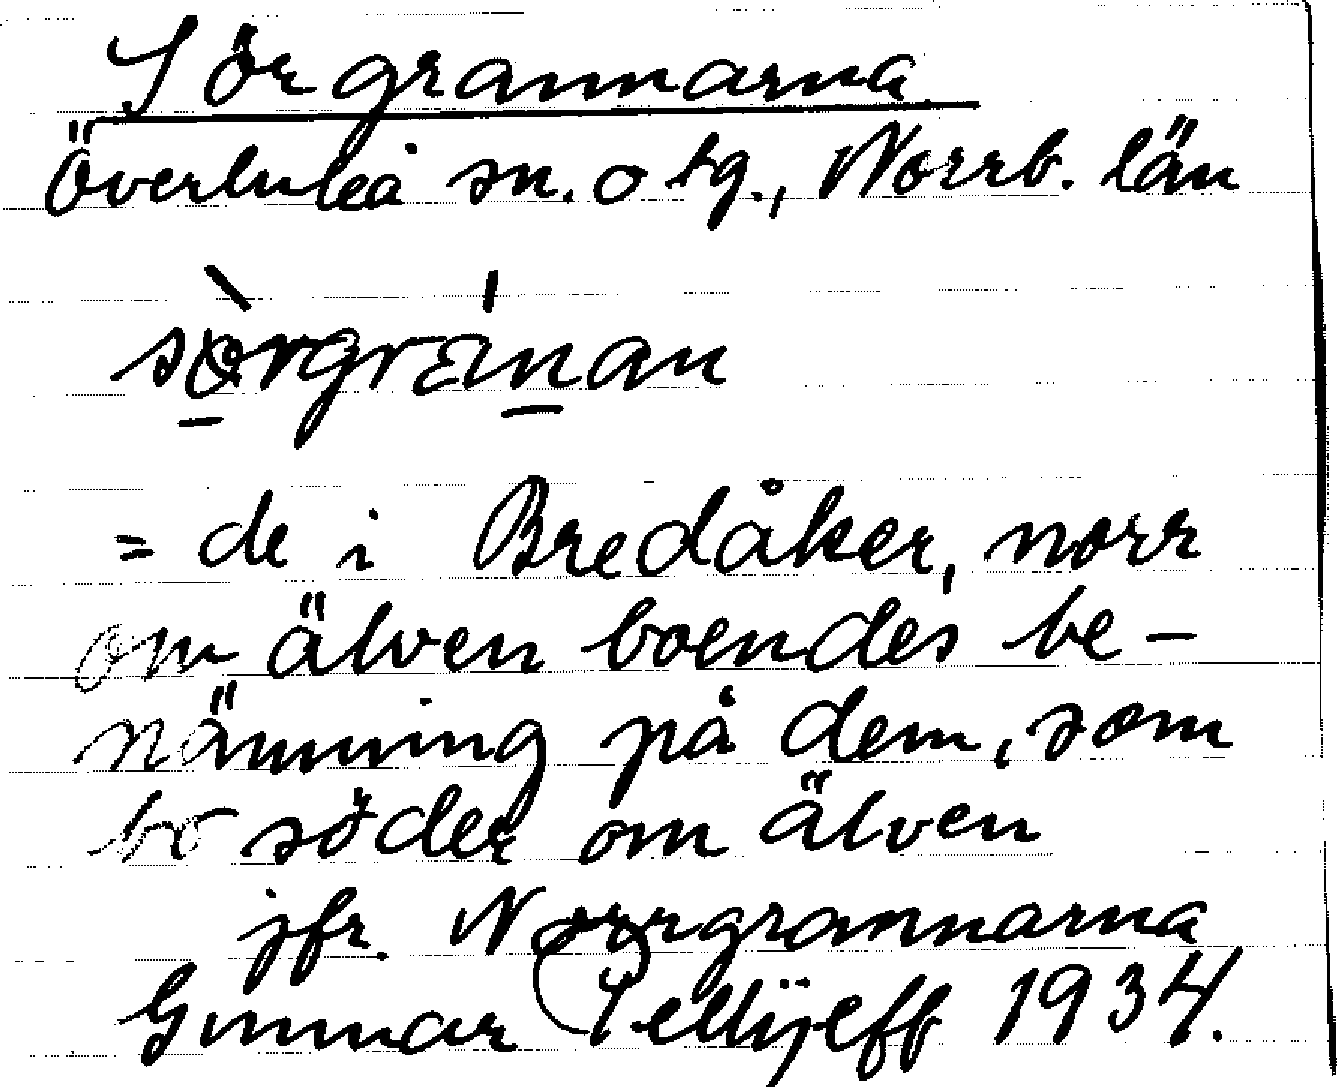 Sörgrannarna
Överluleå sn. o tg., Norrb. län
sò̱rgráṉan
= de i Bredåker, norr
om älven boendes be-
nämning på dem, som
bo söder om älven
jfr. Norrgrannarna
Gunnar Pellijeff 1934.